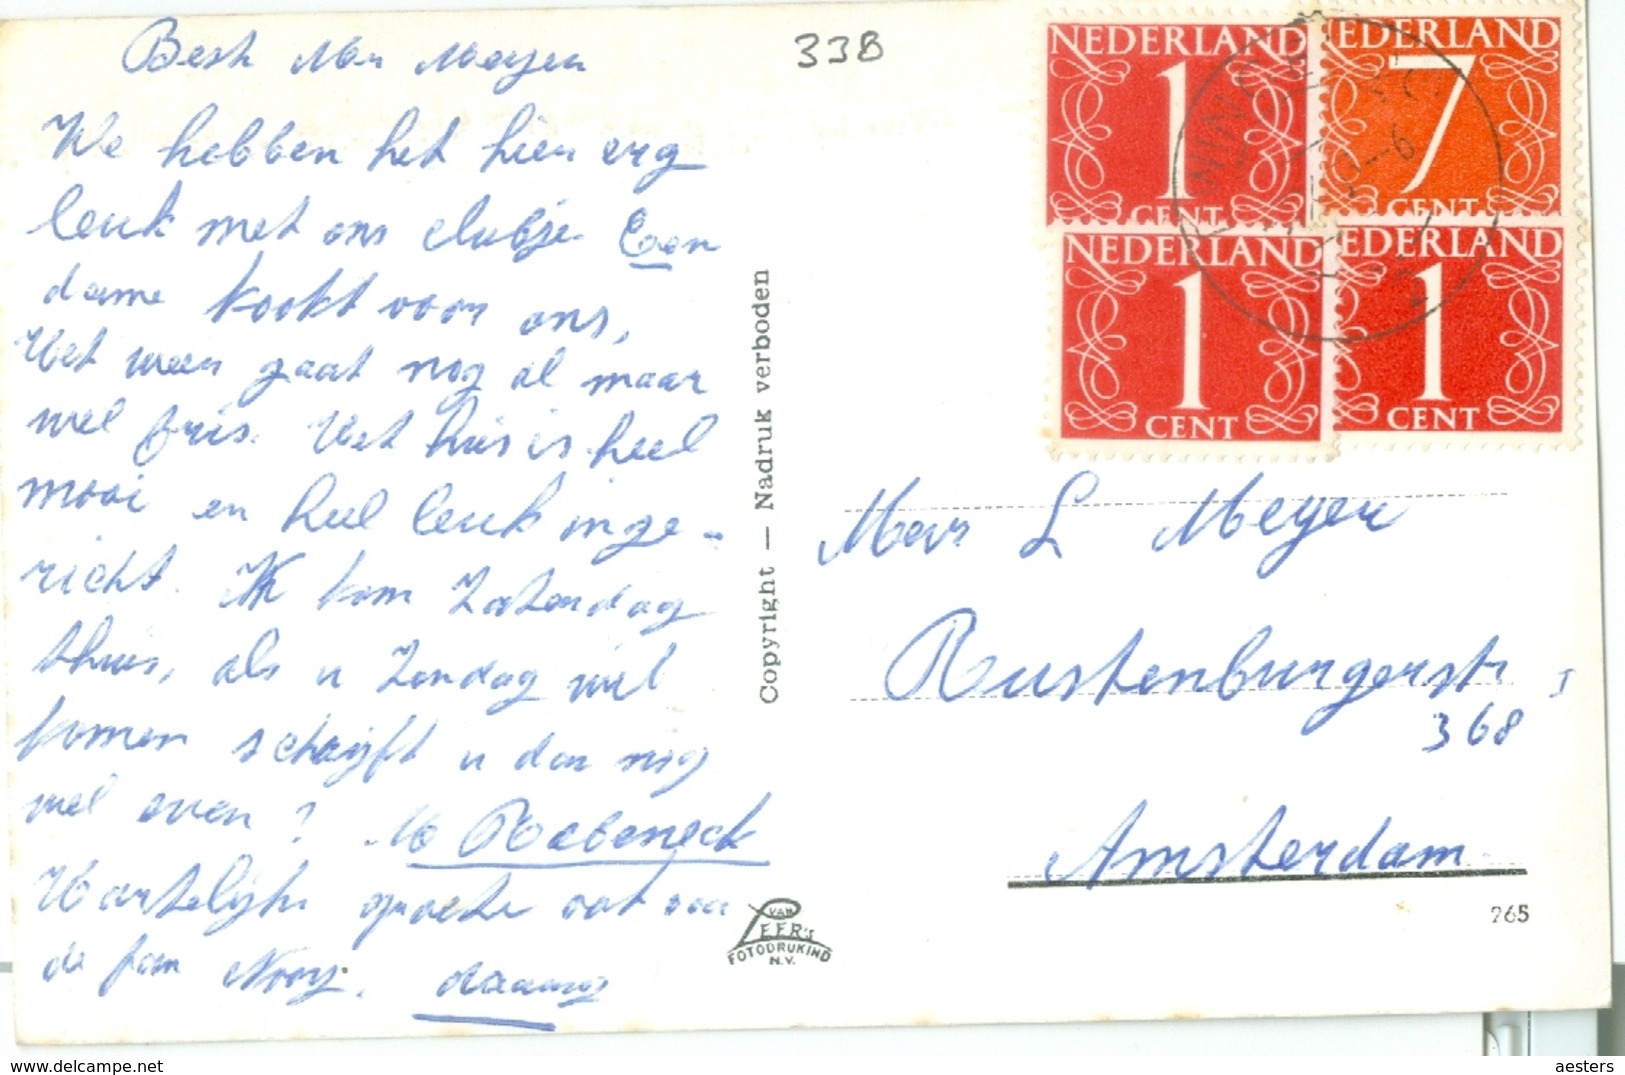 338
Best Mevr Meyer
We hebben het hier erg
leuk met ons clubje Een
dame kookt voor ons,
Het weer gaat nog al maar
wel fris. Het huis is heel
mooi en heel leuk inge-
richt. Ik kom Zaterdag
thuis, als u Zondag wil
komen schrijft u dan nog
wel even? M Rabeneck
Hartelijke groeten ook voor
de fam Nooy.
Copyright — Nadruk verboden
VAN
LEER's
FOTODRUKIND
N.V.
NEDERLAND
1
CENT
NEDERLAND
7
CENT
NEDERLAND
1
CENT
NEDERLAND
1
CENT
Mevr L Meyer
Rustenburgerstr I
368
Amsterdam
265
aesters